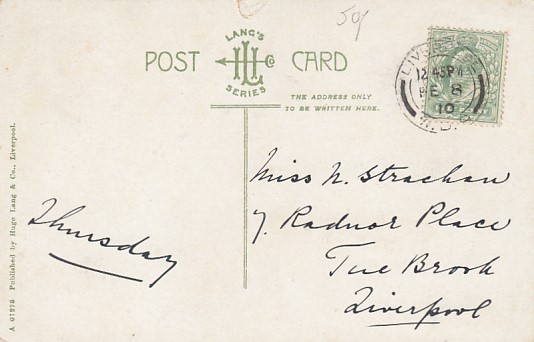 50/
LANG'S
POST LHL Co CARD
SERIES
THE ADDRESS ONLY
TO BE WRITTEN HERE.
LIVERPOOL
12.45PM
8
10
Miss N. Strachan
7. Radnor Place
Tue Brook
Liverpool
Thursday
A G7275 Published by Hugo Lang & Co., Liverpool.